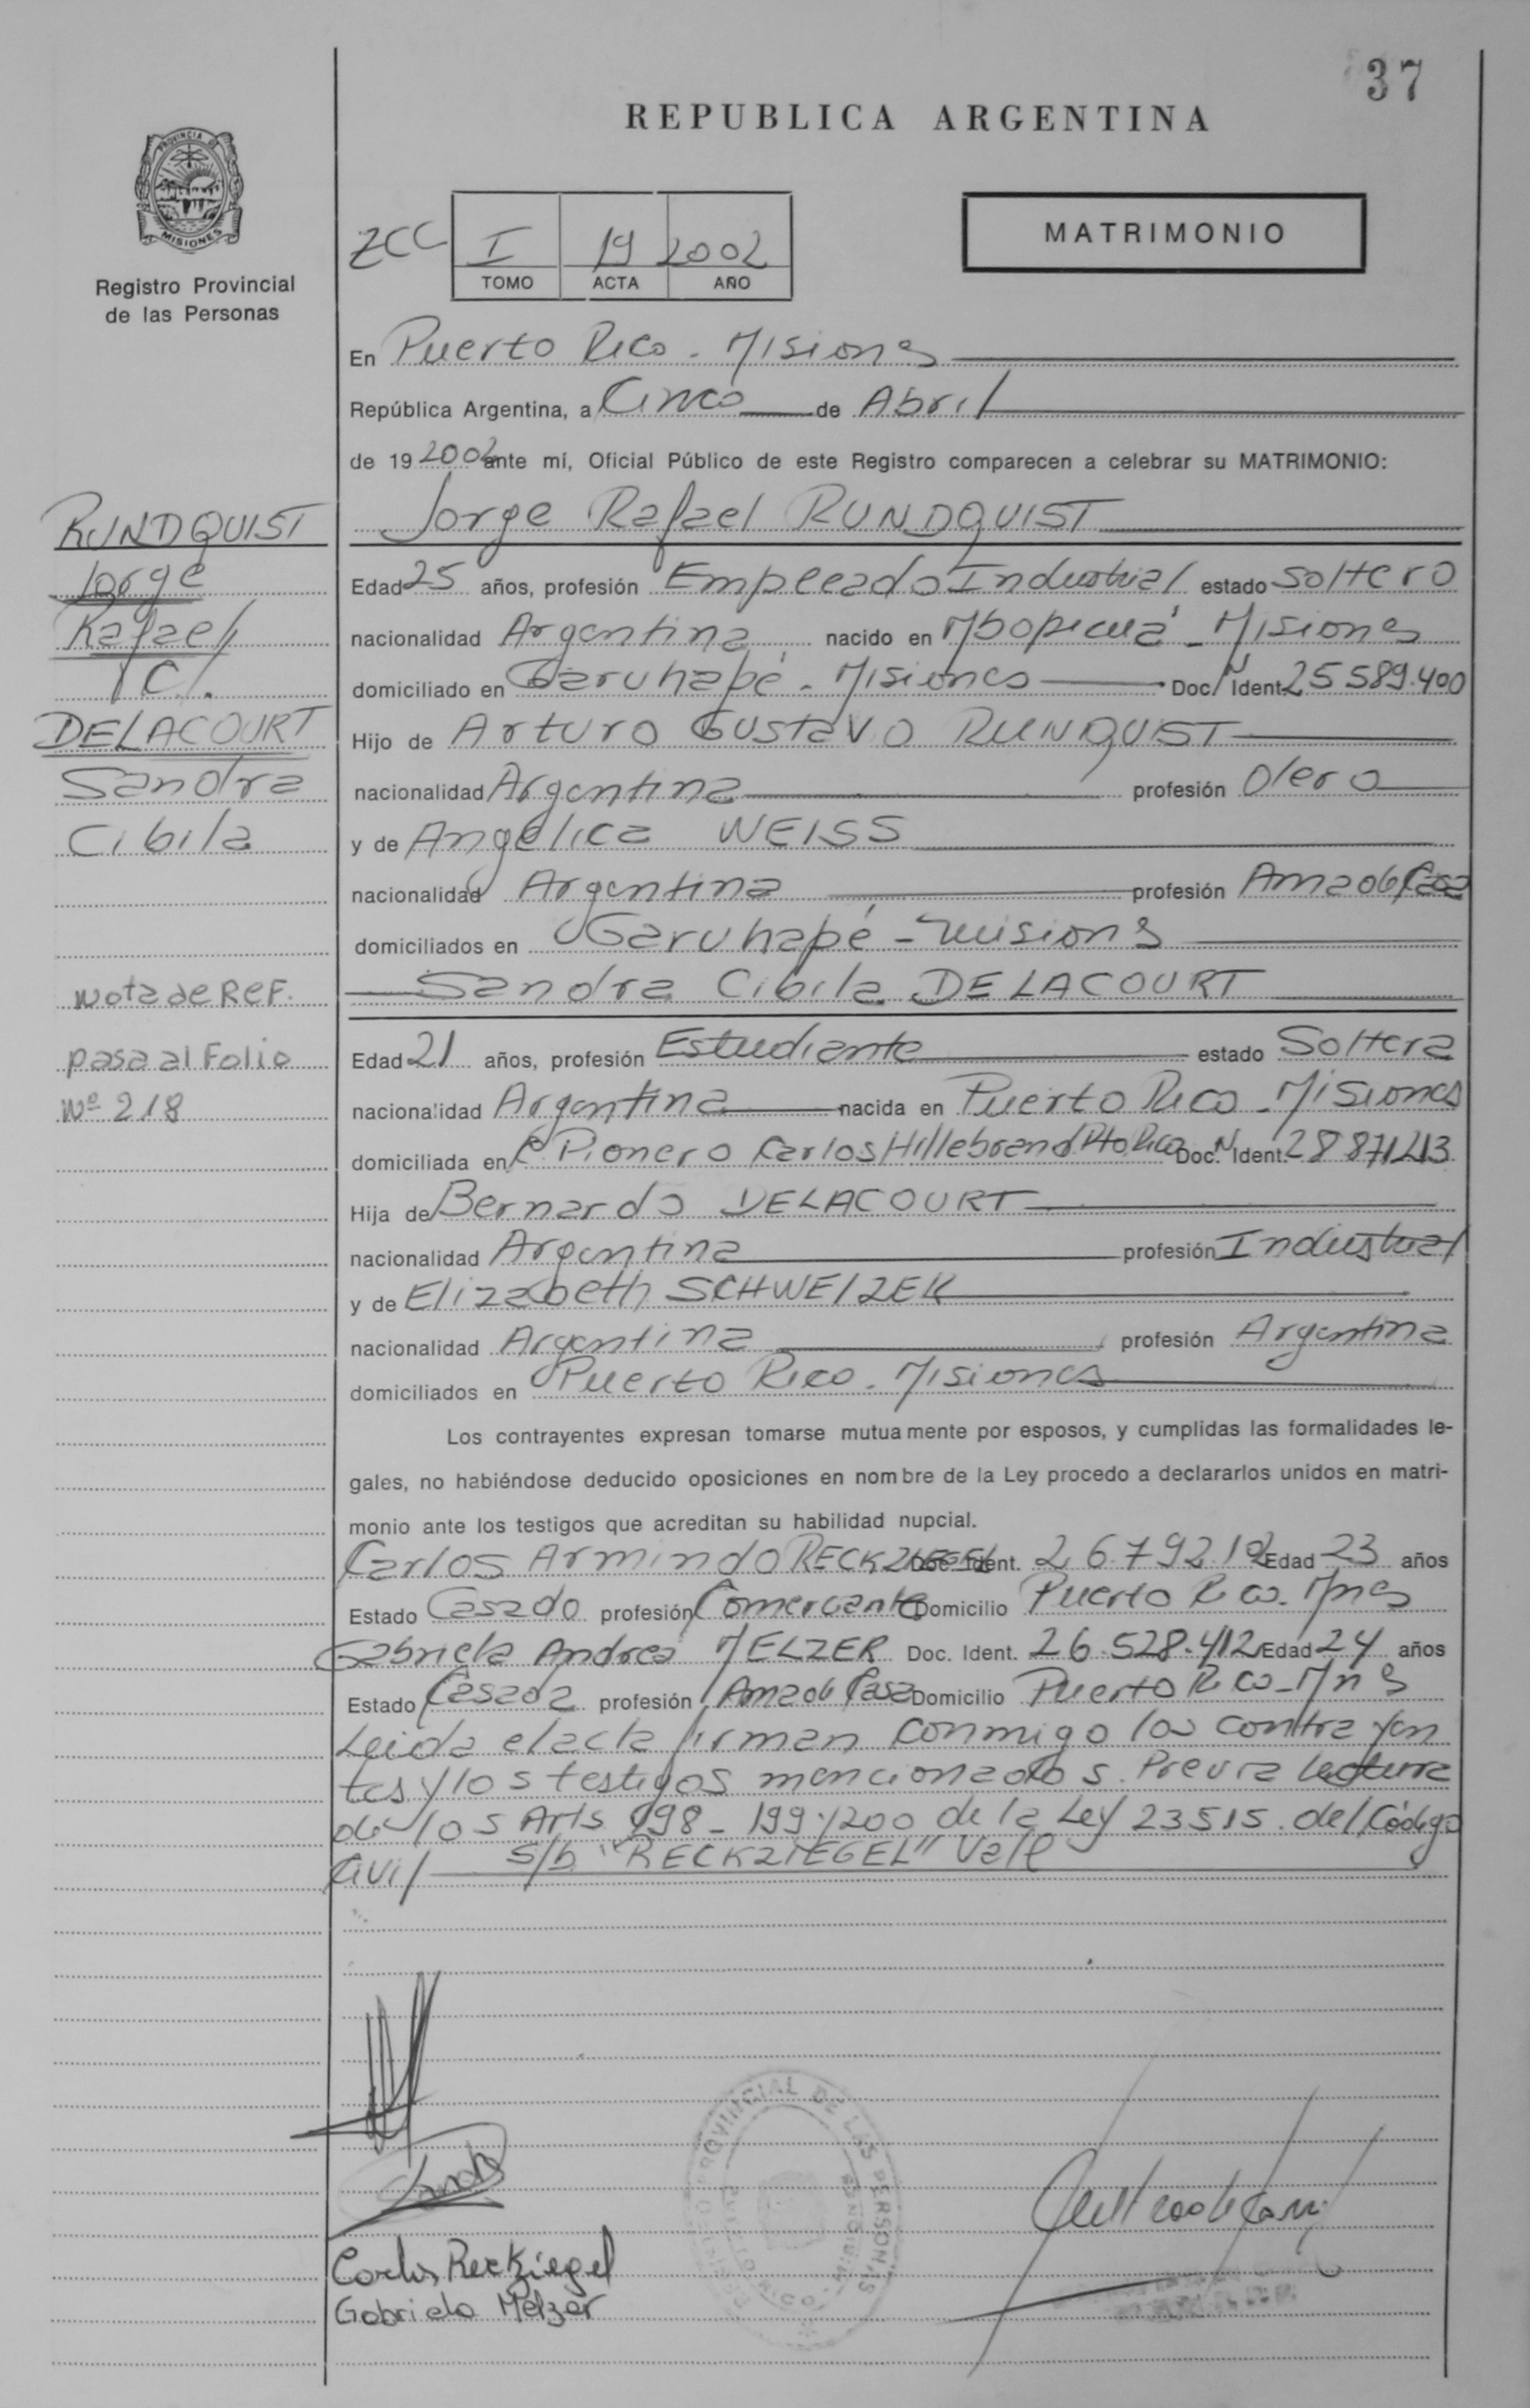 37
REPUBLICA ARGENTINA
PROVINCIA DE
MISIONES
Registro Provincial
de las Personas
ZCC I 19 2002
TOMO ACTA AÑO
MATRIMONIO
En Puerto Rico - Misiones
República Argentina, a Cinco de Abril
de 19 2002 ante mí, Oficial Público de este Registro comparecen a celebrar su MATRIMONIO:
RUNDQUIST
Jorge
Rafael
C/.
DELACOURT
Sandra
Cibila
Nota de REF.
pasa al Folio
Nº 218
Jorge Rafael RUNDQUIST
Edad 25 años, profesión Empleado Industrial estado Soltero
nacionalidad Argentina nacido en Mbopicuá - Misiones
domiciliado en Garuhapé - Misiones Doc. N Ident. 25589.400
Hijo de Arturo Gustavo RUNQUIST
nacionalidad Argentina profesión Olero
y de Angélica WEISS
nacionalidad Argentina profesión Ama de Casa
domiciliados en Garuhapé - Misiones
Sandra Cibila DELACOURT
Edad 21 años, profesión Estudiante estado Soltera
nacionalidad Argentina nacida en Puerto Rico - Misiones
domiciliada en Pionero Carlos Hillebrand Pto Rico Doc. N Ident. 28871213
Hija de Bernardo DELACOURT
nacionalidad Argentina profesión Industrial
y de Elizabeth SCHWEIZER
nacionalidad Argentina profesión Argentina
domiciliados en Puerto Rico - Misiones
Los contrayentes expresan tomarse mutuamente por esposos, y cumplidas las formalidades le-
gales, no habiéndose deducido oposiciones en nombre de la Ley procedo a declararlos unidos en matri-
monio ante los testigos que acreditan su habilidad nupcial.
Carlos Armindo RECKZIEGEL Doc. Ident. Edad 23 años
Estado Casado profesión Comerciante Domicilio Puerto Rico - Mnes
Gabriela Andrea MELZER Doc. Ident. 26.528.412 Edad 24 años
Estado Casada profesión Ama de Casa Domicilio Puerto Rico - Mnes
Leida el acta firman conmigo los contrayen
tes y los testigos mencionados. Previa lectura
de los Arts 198 - 199 y 200 de la Ley 23515 del Código
Civil S/b "RECKZIEGEL" Vale
Carlos Reckziegel
Gabriela Melzer
PROVINCIAL DE LAS PERSONAS
PUERTO RICO